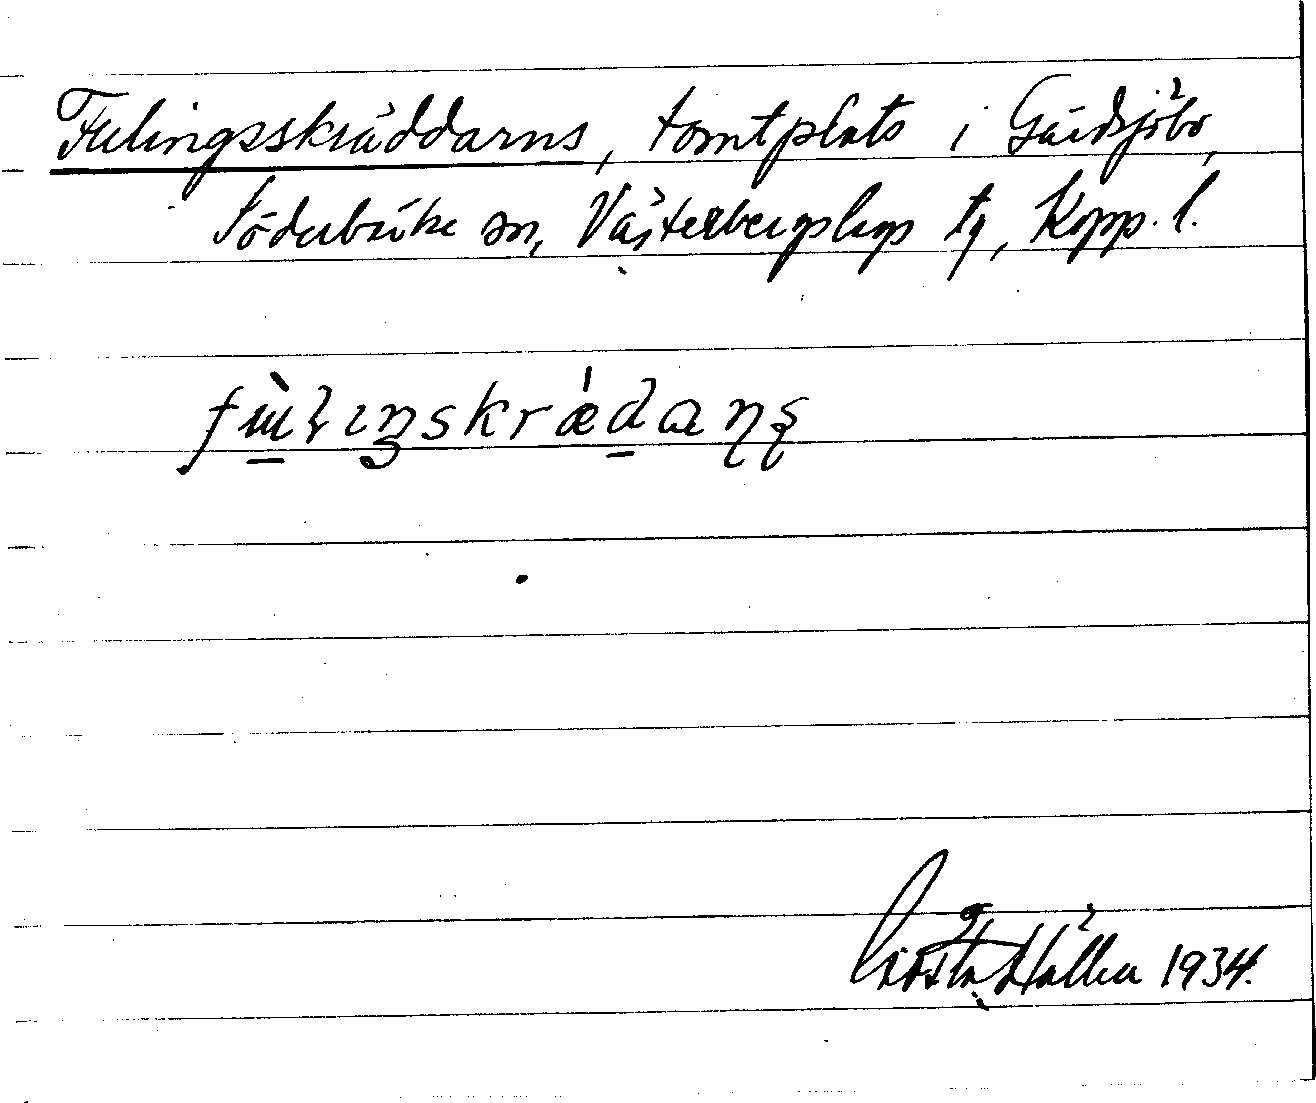 Fulingsskräddarns, tomtplats i Gårdsjöbo,
Söderbärke sn, Västerbergslags tg, Kopp. l.
Gösta Hållen 1934.